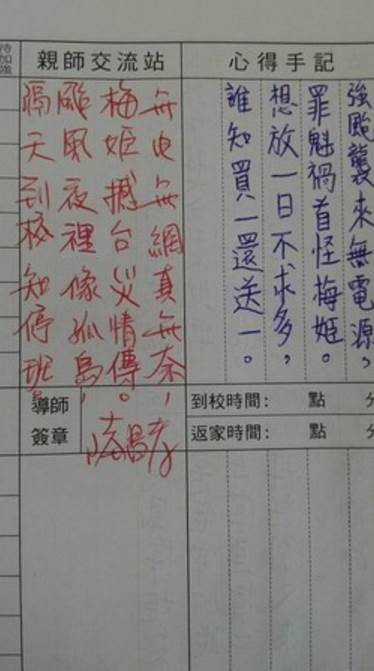 心得手記
強颱襲來無電源，
罪魁禍首怪梅姬。
想放一日不求多，
誰知買一還送一。
親師交流站
無電無網真無奈，
梅姬撼台災情傳。
颱風夜裡像孤島，
隔天到校知停班。
待加進
到校時間： 點 分
導師簽章
返家時間： 點 分